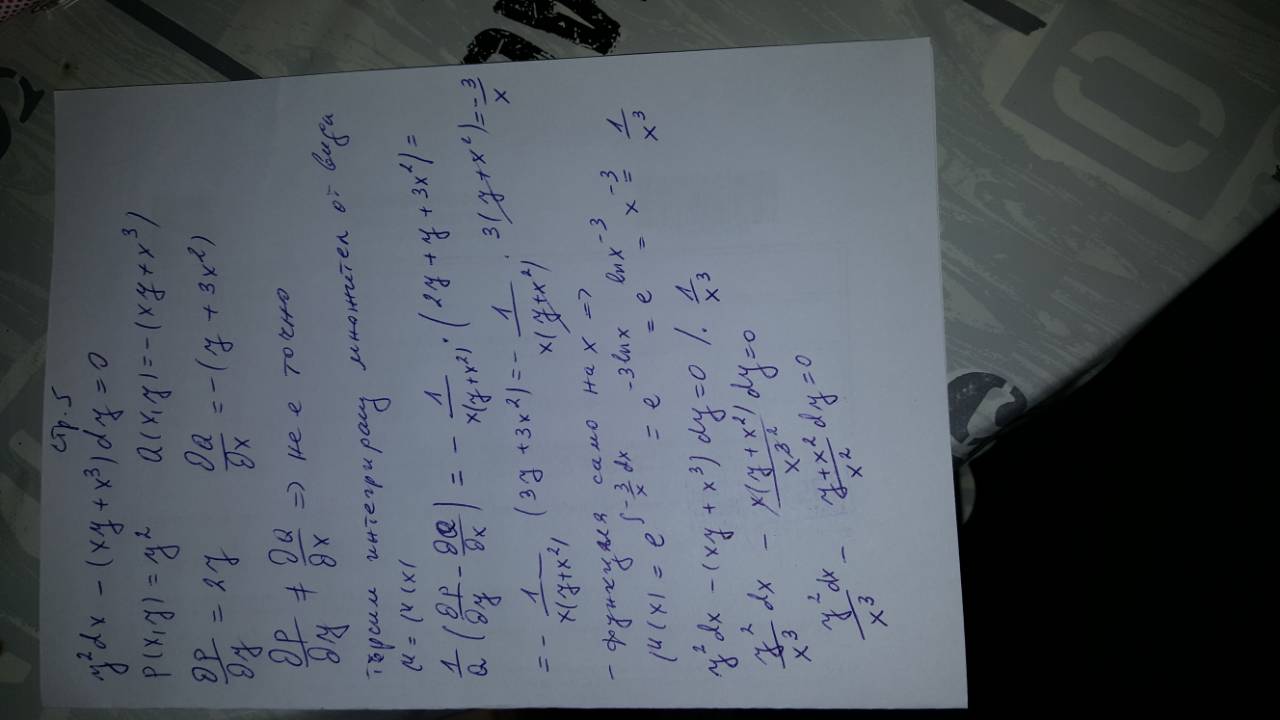 стр. 5
y²dx − (xy + x³) dy = 0
P(x,y) = y² Q(x,y) = −(xy + x³)
∂P/∂y = 2y ∂Q/∂x = −(y + 3x²)
∂P/∂y ≠ ∂Q/∂x => не е точно
Търсим интегриращ множител от вида
μ = μ(x)
1/Q (∂P/∂y − ∂Q/∂x) = − 1/x(y+x²) · (2y + y + 3x²) =
= − 1/x(y+x²) (3y + 3x²) = − 1/x(y+x²) · 3(y + x²) = −3/x
− функция само на x =>
μ(x) = e^∫−3/x dx = e^−3lnx = e^lnx^−3 = x^−3 = 1/x³
y²dx − (xy + x³) dy = 0 /· 1/x³
y²/x³ dx − x(y + x²)/x³² dy = 0
y²dx/x³ − y+x²/x² dy = 0